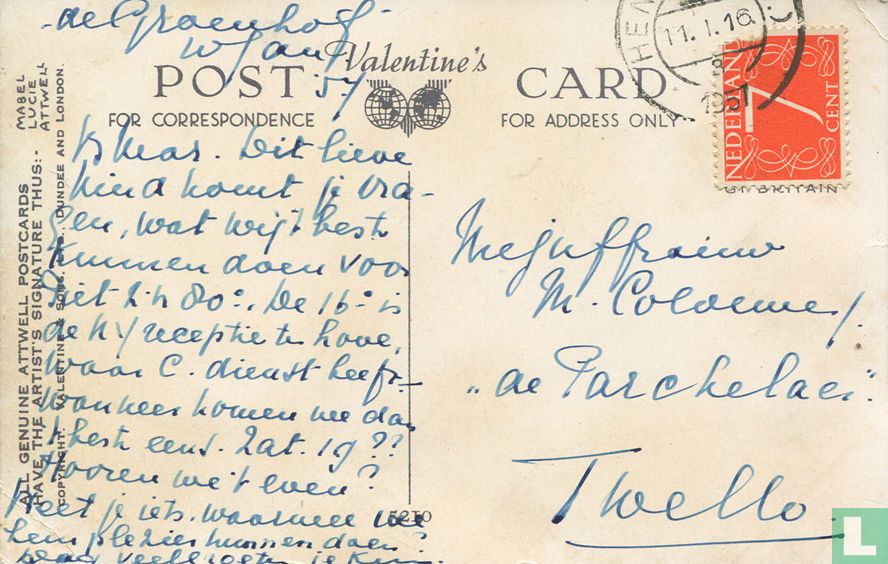 de Groenhof
Jan
57
Valentine's
POST CARD
FOR CORRESPONDENCE
FOR ADDRESS ONLY
ALL GENUINE ATTWELL POSTCARDS
HAVE THE ARTIST'S SIGNATURE THUS:-
MABEL
LUCIE
ATTWELL
COPYRIGHT. VALENTINE & SONS, LTD., DUNDEE AND LONDON.
11.1.16
8
1957
NEDERLAND
7
CENT
GT BRITAIN
Dit lieve
kind komt je vra-
gen, wat wij 't best
kunnen doen voor
Piet z'n 80e. De 16e is
de NY receptie ten hove,
waar C. dienst heeft
wanneer komen we dan
't best eens. Zat. 19??
Hooren we 't even?
Weet je iets, waarmee we
hem plezier kunnen doen?
5210
Mejuffrouw
M.
"de Parckelaer".
Twello
L